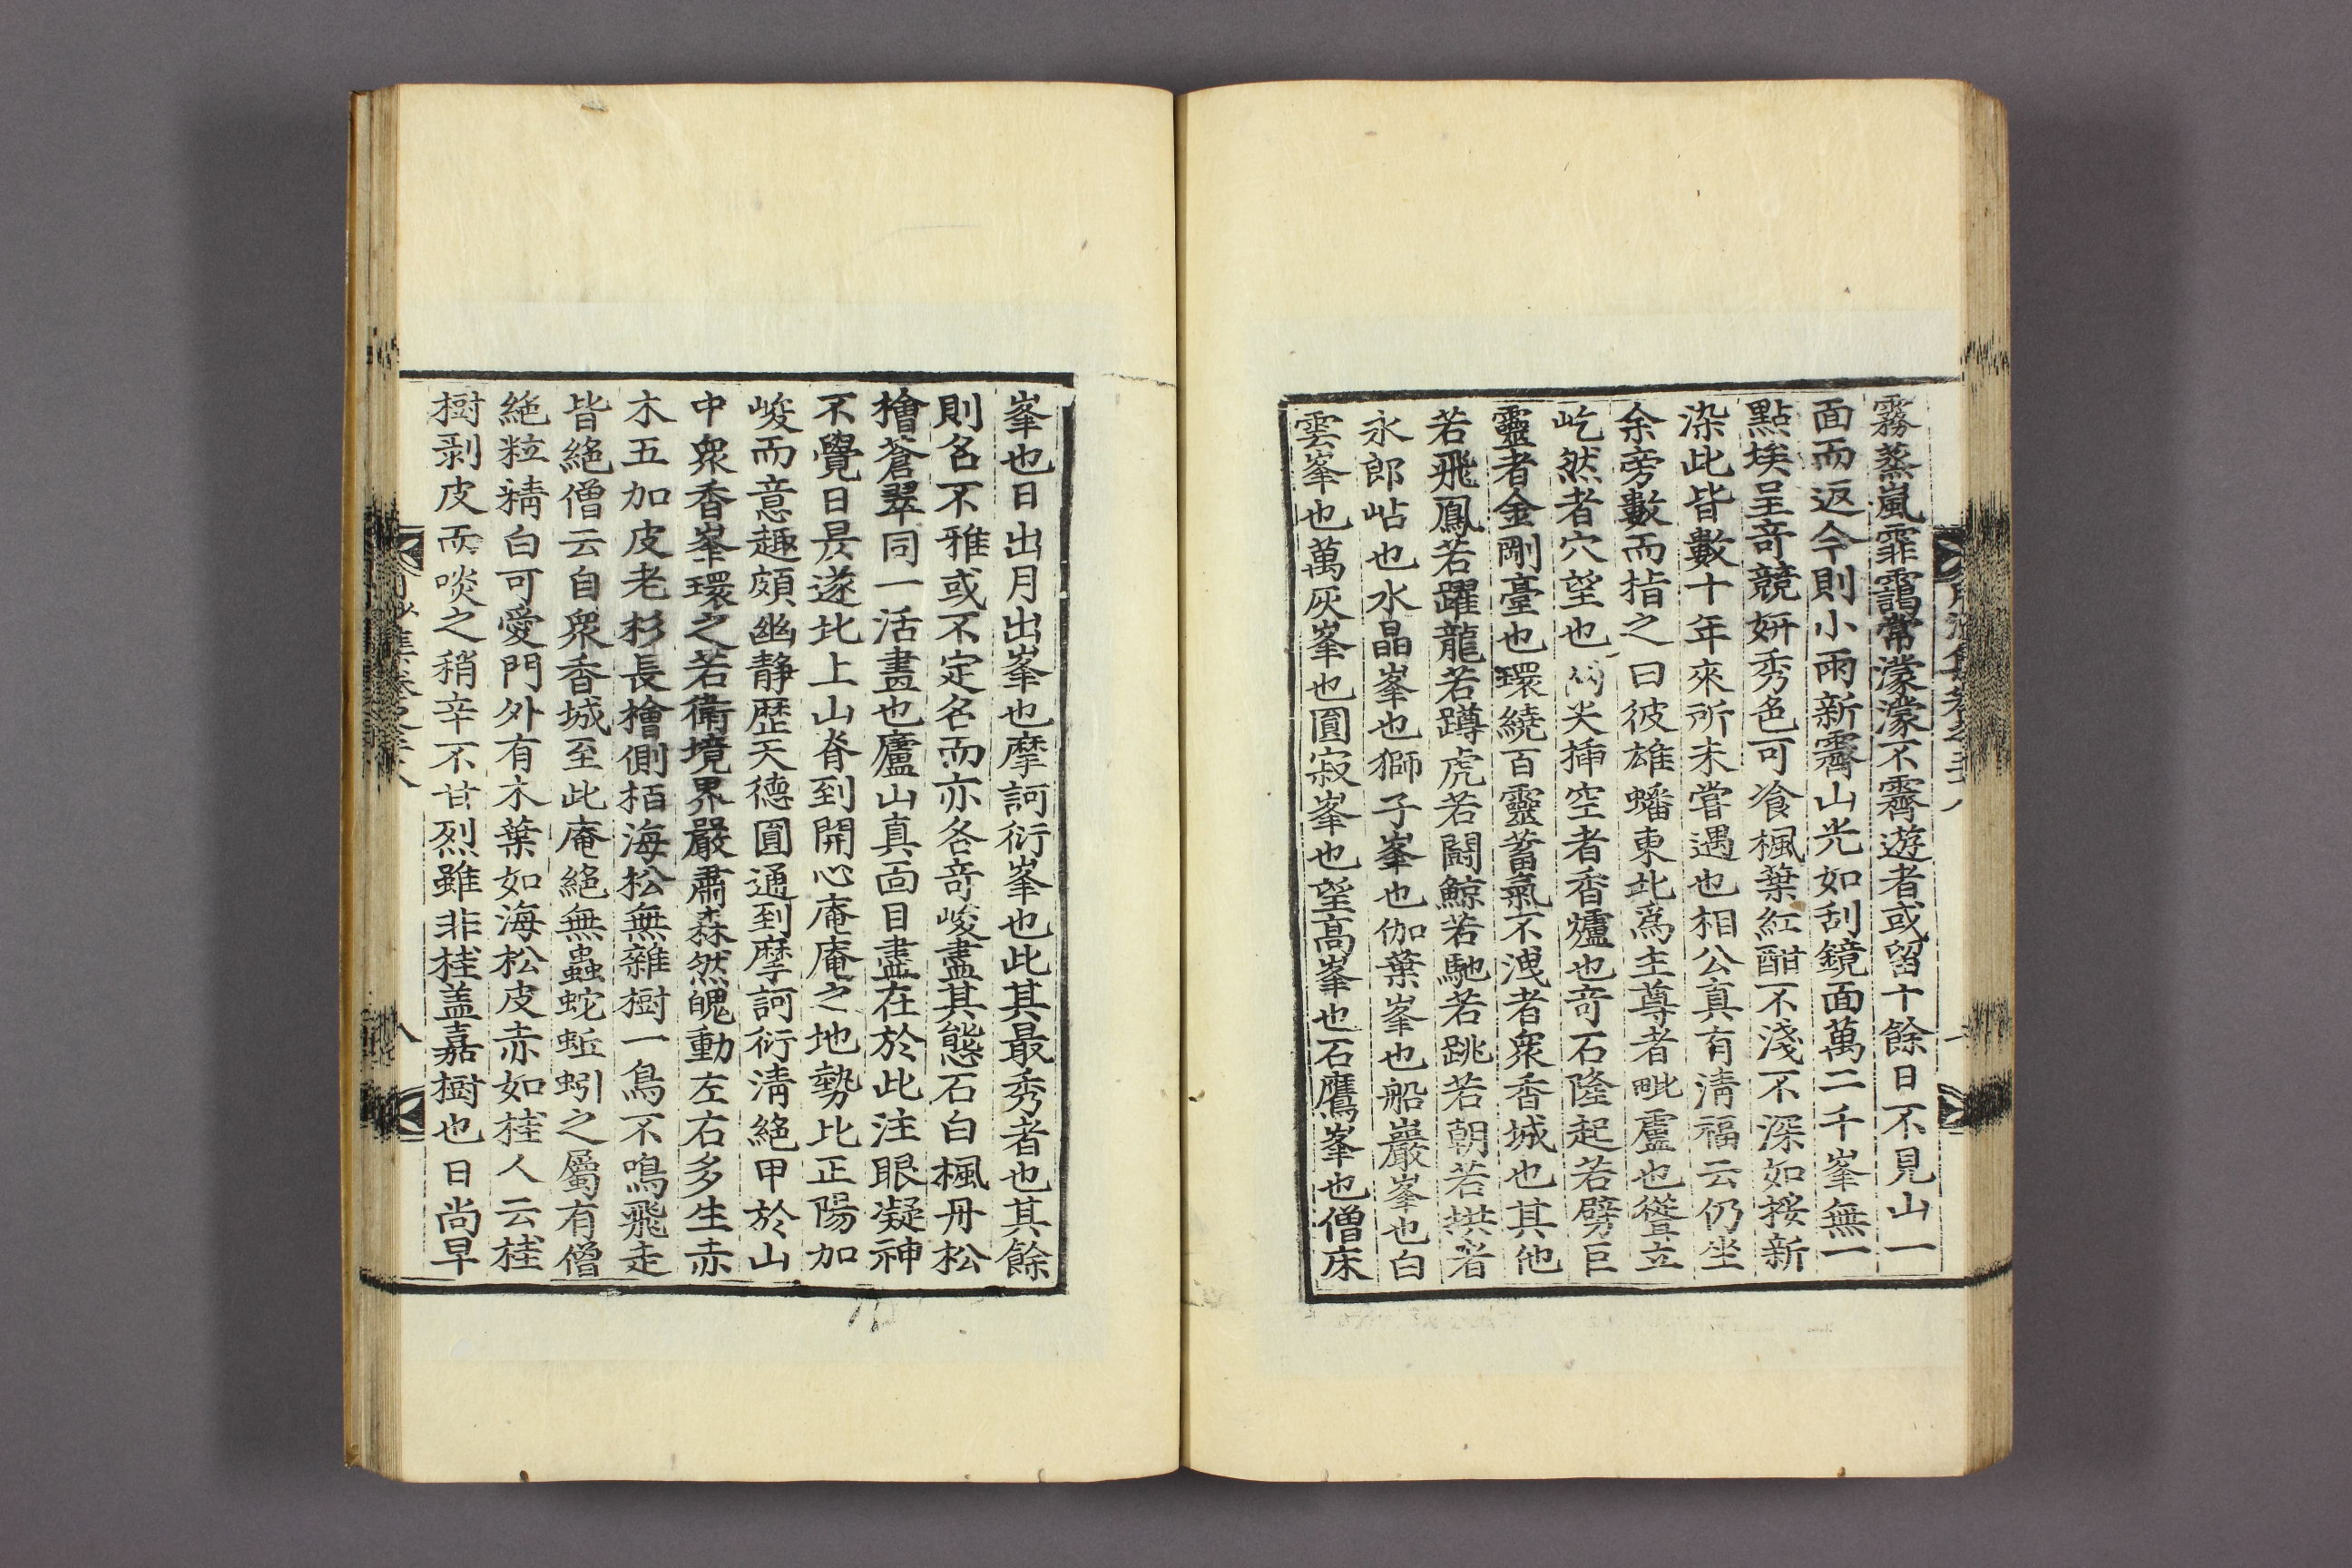 霧蒸嵐霏靄常濛濛不霽遊者或留十餘日不見山一
面而返今則小雨新霽山光如刮鏡面萬二千峯無一
點埃呈竒競姸秀色可飡楓葉紅酣不淺不深如挼新
染此皆數十年來所未嘗遇也相公真有淸福云仍坐
余旁數而指之曰彼雄蟠東北爲主尊者毗盧也聳立
屹然者穴望也 尖揷空者香爐也竒石隆起若劈巨
靈者金剛臺也環繞百靈蓄氣不洩者衆香城也其他
若飛鳳若躍龍若蹲虎若鬪鯨若馳若跳若朝若拱者
永郎岾也水晶峯也獅子峯也伽葉峯也船巖峯也白
雲峯也萬灰峯也圓寂峯也望高峯也石鷹峯也僧床
峯也日出月出峯也摩訶衍峯也此其最秀者也其餘
則名不雅或不定名而亦各竒峻盡其態石白楓丹松
檜蒼翠同一活畫也廬山真面目盡在於此注眼凝神
不覺日昃遂北上山脊到開心庵庵之地勢比正陽加
峻而意趣頗幽靜歷天德圓通到摩訶衍淸絶甲於山
中衆香峯環之若衛境界嚴肅森然魄動左右多生赤
木五加皮老杉長檜側栢海松無雜樹一鳥不鳴飛走
皆絶僧云自衆香城至此庵絶無蟲蛇蚯蚓之屬有僧
絶粒精白可愛門外有木葉如海松皮赤如桂人云桂
樹剥皮而啖之稍辛不甘烈雖非桂盖嘉樹也日尚早
八